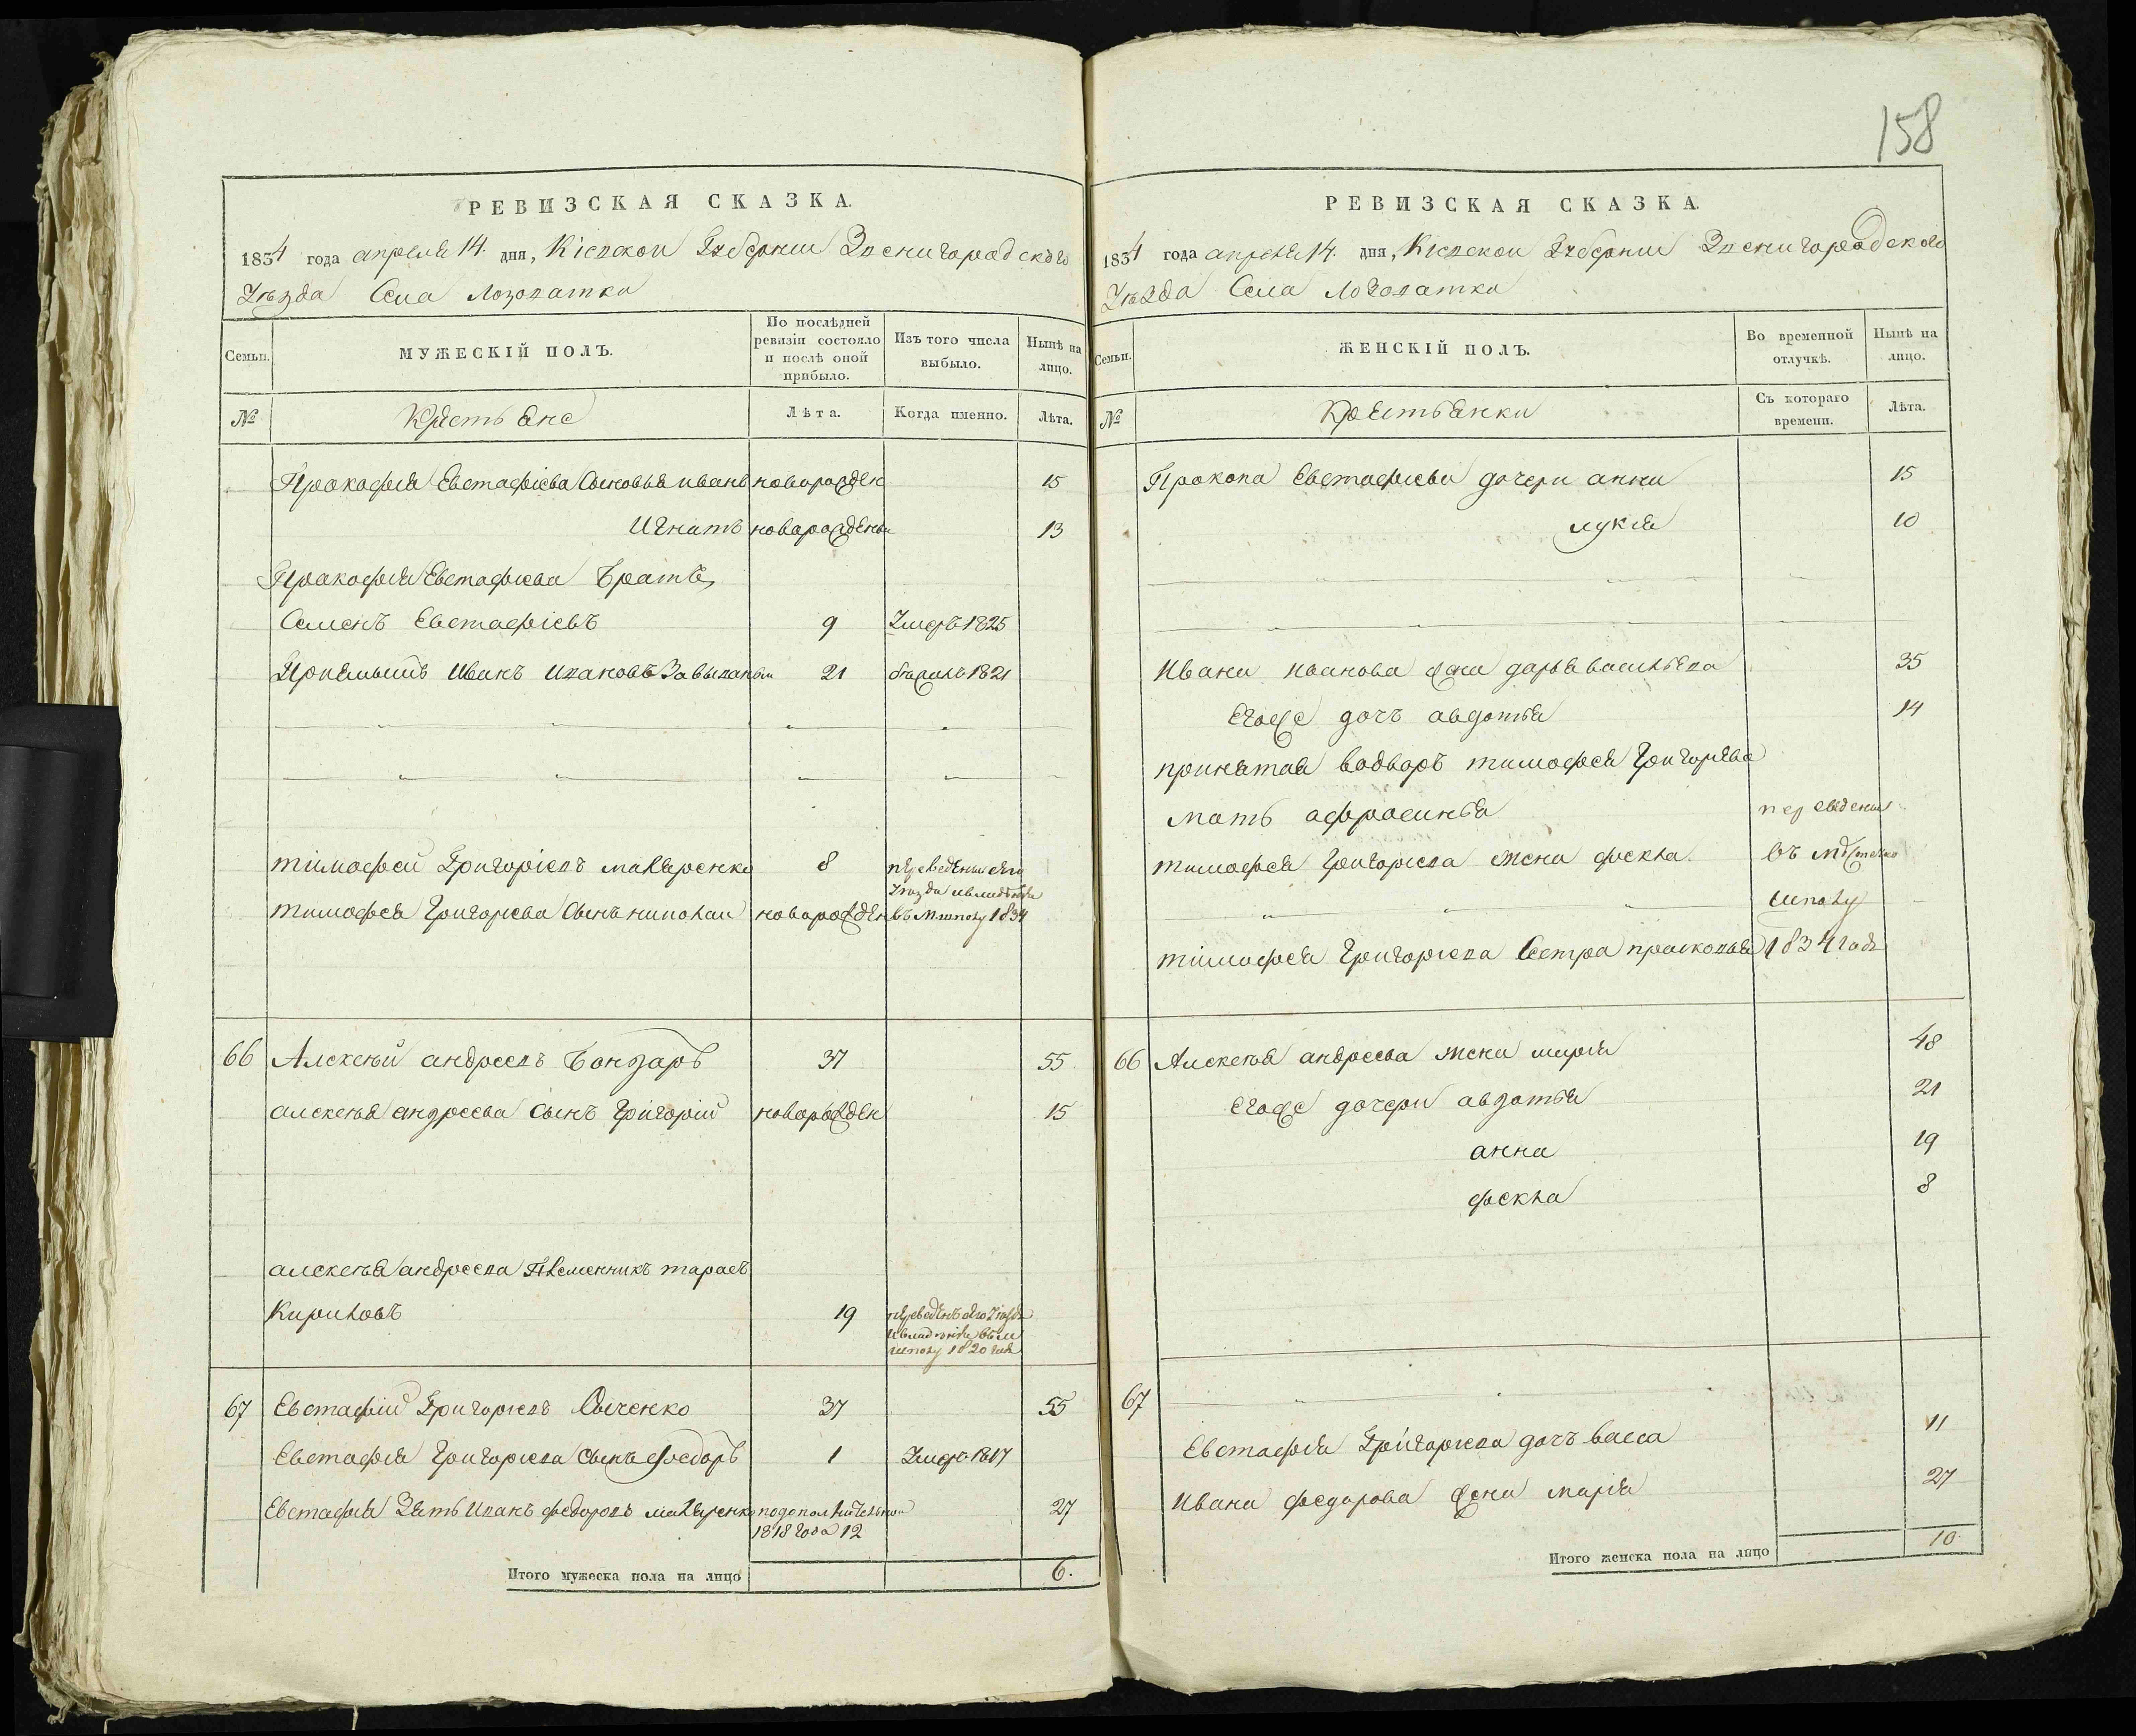 158
РЕВИЗСКАЯ СКАЗКА.
1834 года апреля 14. дня, Кіевской Губерніи Звенигородского
Уѣзда Села Лозоватки
Семьи.
МУЖЕСКІЙ ПОЛЪ.
По послѣдней ревизіи состояло и послѣ оной прибыло.
Изъ того числа выбыло.
Нынѣ на лицо.
№
Крестьяне
Лѣта.
Когда именно.
Лѣта.
Прокофія Евстафіева Сыновья иванъ новорожден 15
Игнатъ новорожденъ 13
Прокофія Евстафіева Братъ,
Семенъ Евстафіевъ 9 Умеръ 1825
Пріемышъ Иванъ Ивановъ 21 1821
тимофей Григоріевъ макаренко 8 переведены
Уезда
тимофея Григорьева Сынъ николаи новорожден въ М шполу 1834
66 Алексѣй андреевъ Бондаръ 37 55
алексѣя андреева Сынъ Григорій новорожден 15
алексѣя андреева Племенникъ тарасъ
Кириловъ 19 переведенъ
шполу 1820 года
67 Евстафій Григоріевъ Сыченко 37 55
Евстафія Григоріева Сынъ федоръ 1 Умеръ 1817
Евстафія Зять Иванъ федоровъ макаренко подополнительной 27
1818 года 12
Итого мужеска пола на лицо 6.
РЕВИЗСКАЯ СКАЗКА.
1834 года апреля 14. дня, Кіевской Губерніи Звенигородского
Уѣзда Села Лозоватки
Семьи.
ЖЕНСКІЙ ПОЛЪ.
Во временной отлучкѣ.
Нынѣ на лицо.
№
Крестьянки
Съ котораго времени.
Лѣта.
Прокопа Евстафіева дочери анна 15
лукія 10
Ивана иванова жена дарья васильева 35
Егоже дочъ авдотья 14
принятая водворъ тимофея Григорьева
мать афросинья переведены
тимофея Григоріева жена фекла въ местечко
шполу
тимофея Григоріева Сестра прасковья 1834 года
66 Алексѣя андреева жена марія 48
Егоже дочери авдотья 21
анна 19
фекла 8
67
Евстафія Григоріева дочъ васса 11
Ивана федорова жена марія 27
Итого женска пола на лицо 10